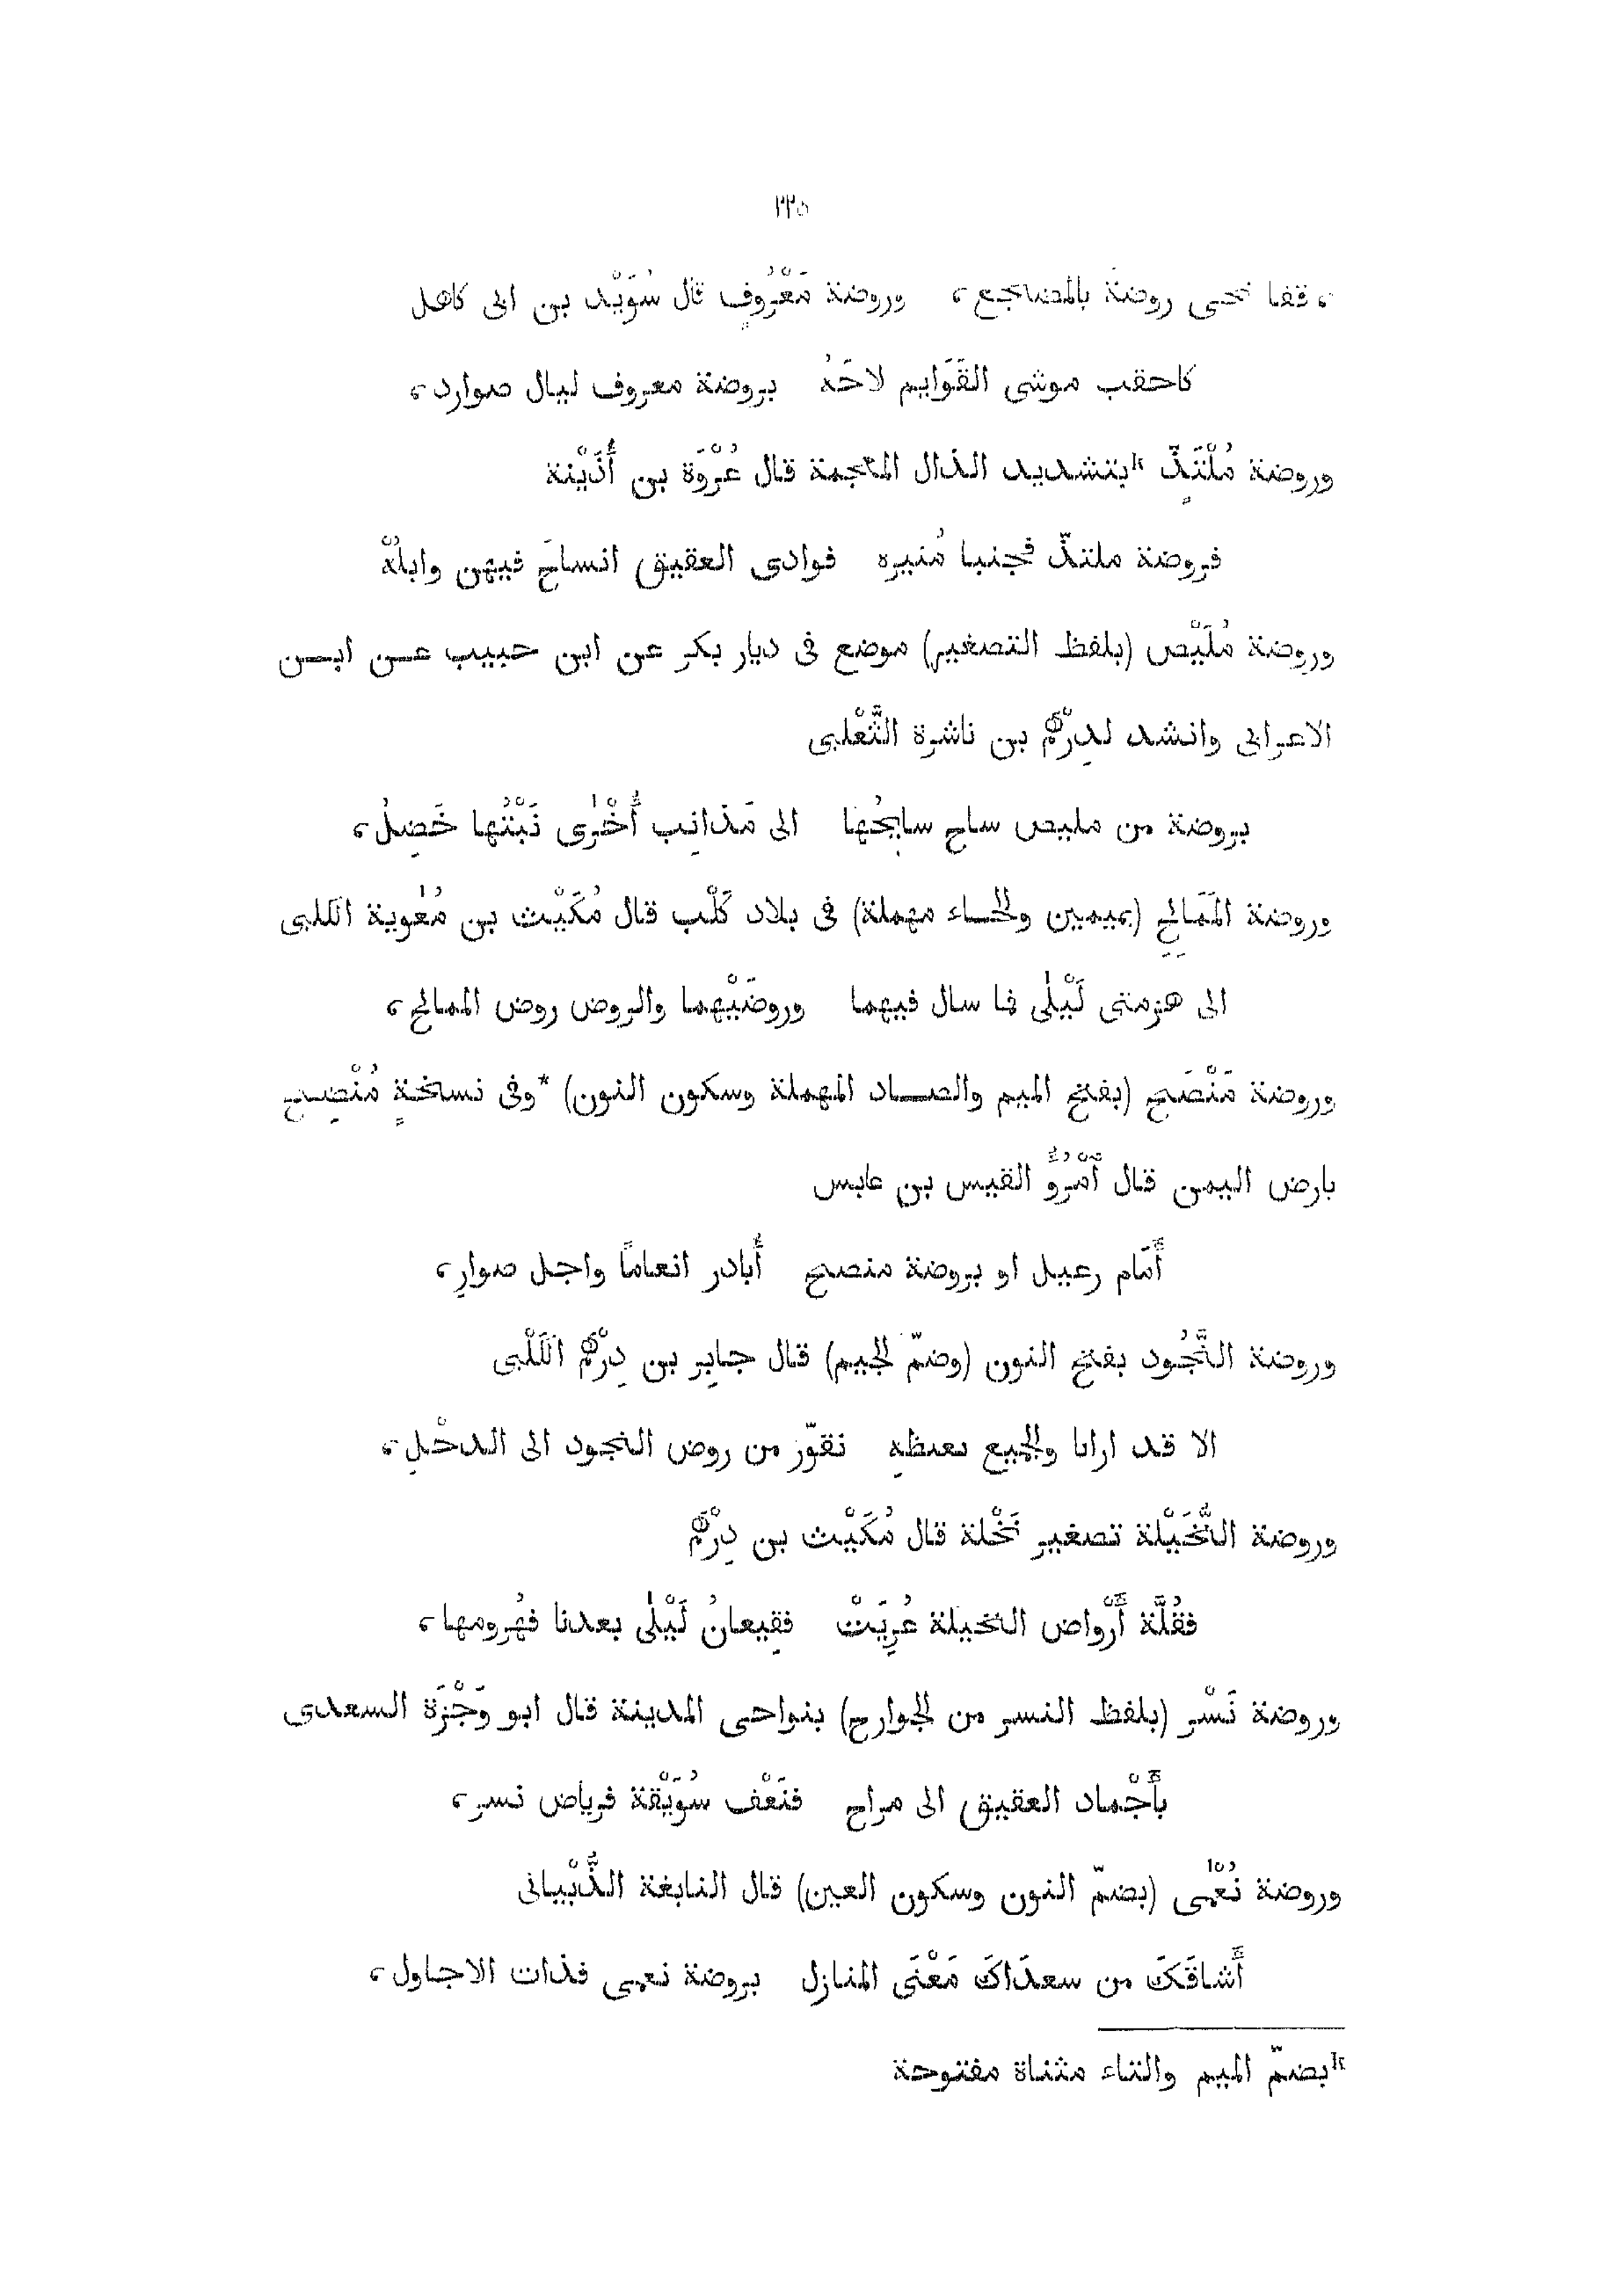 ٢٢٥
، قفا نحيى روضة بالمضاجع ، وروضة مَعْرُوفٍ قال سُوَيْد بن ابى كاهل
كاحقب موشى القَوَايم لاحَهُ بروضة معروف ليال صوارد ،
وروضة مُلْتَذٍّ ¹²بتشديد الذال المعجمة قال عُرْوَة بن أُذَيْنة
فروضة ملتذّ فجنبا مُنيره فوادى العقيق انساحَ فيهن وابلُهْ
وروضة مُلَيْص (بلفظ التصغير) موضع فى ديار بكر عن ابن حبيب عن ابن
الاعرابى وانشد لدِرْهَم بن ناشرة الثَّعْلبى
بروضة من مليص ساح سايحُها الى مَذانِب أُخْرٰى نَبْتُها خَضِلُ ،
وروضة المَمَالِحِ (بميمين والحاء مهملة) فى بلاد كَلْب قال مُكَيْث بن مُعٰوية الكلبى
الى هزمتى لَيْلٰى فما سال فيهما وروضَيْهما والروض روض الممالح ،
وروضة مَنْصَح (بفتح الميم والصاد المهملة وسكون النون) *وفى نسخةٍ مُنْصِح
بارض اليمن قال ٱمْرُؤُ القيس بن عابس
أَمَام رعيل او بروضة منصح أُبادر انعامًا واجل صوارِ ،
وروضة النَّجُود بفتح النون (وضمّ الجيم) قال جابِر بن دِرْهَم الكَلْبى
الا قد ارانا والجميع نغبطه نقوّز من روض النجود الى الدحْلِ ،
وروضة النُّخَيْلة تصغير نَخْلة قال مُكَيْث بن دِرْهَم
فقُلَّة أَرْواض النخيلة عُرِيَتْ فقِيعانُ لَيْلٰى بعدنا فهُرومها ،
وروضة نَسْر (بلفظ النسر من الجوارح) بنواحى المدينة قال ابو وَجْزَة السعدى
بأَجْماد العقيق الى مراح فنَعْف سُوَيْقة فرياض نسر ،
وروضة نُعْمٰى (بضمّ النون وسكون العين) قال النابغة الذُّبْيانى
أَشاقَكَ من سعدَاكَ مَغْنَى المنازل بروضة نعمى فذات الاجاول ،
¹²بضمّ الميم والتاء مثناة مفتوحة